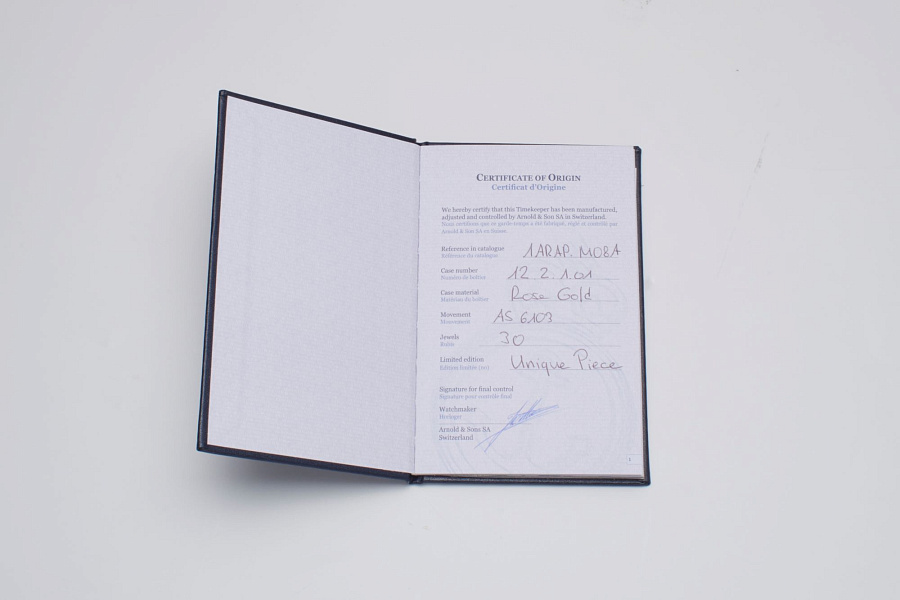 CERTIFICATE OF ORIGIN
Certificat d'Origine
We hereby certify that this Timekeeper has been manufactured,
adjusted and controlled by Arnold & Son SA in Switzerland.
Nous certifions que ce garde-temps a été fabriqué, réglé et contrôlé par
Arnold & Son SA en Suisse.
Reference in catalogue 1ARAP.M08A
Référence du catalogue
Case number 12 2.1.01
Numéro de boîtier
Case material Rose Gold
Matériau du boîtier
Movement AS 6103
Mouvement
Jewels 30
Rubis
Limited edition Unique Piece
Edition limitée (no)
Signature for final control
Signature pour contrôle final
Watchmaker
Horloger
Arnold & Son SA
Switzerland
1